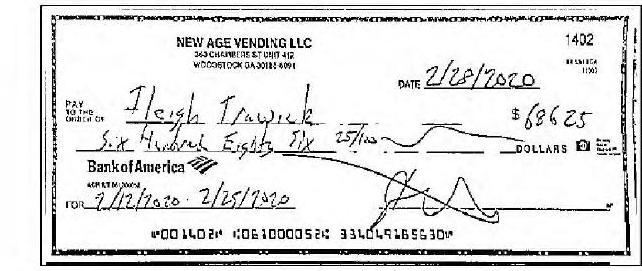 NEW AGE VENDING LLC
1402
363 CHAMBERS ST UNIT 412
WOODSTOCK GA 30188
DATE 2/28/2020
PAY TO THE ORDER OF Ileigh Trawick
$ 686 25
Six Hundred Eighty Six 25/100 DOLLARS
Bank of America
FOR 2/12/2020 - 2/25/2020
⑈001402⑈ ⑆061000052⑆ 334049165630⑈